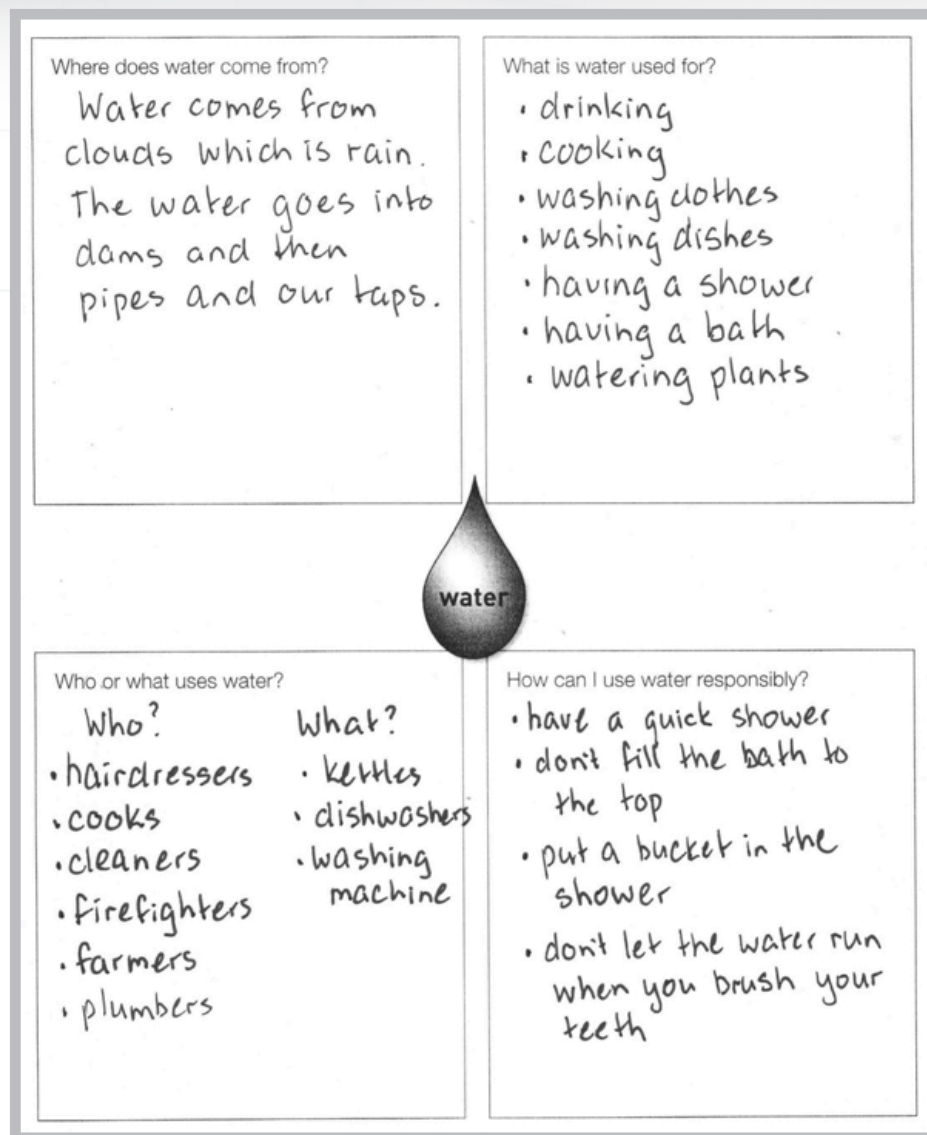 Where does water come from?
Water comes from
clouds which is rain.
The water goes into
dams and then
pipes and our taps.
What is water used for?
• drinking
• cooking
• washing clothes
• washing dishes
• having a shower
• having a bath
• watering plants
water
Who or what uses water?
Who?
• hairdressers
• cooks
• cleaners
• firefighters
• farmers
• plumbers
What?
• kettles
• dishwashers
• washing
machine
How can I use water responsibly?
• have a quick shower
• don't fill the bath to
the top
• put a bucket in the
shower
• don't let the water run
when you brush your
teeth